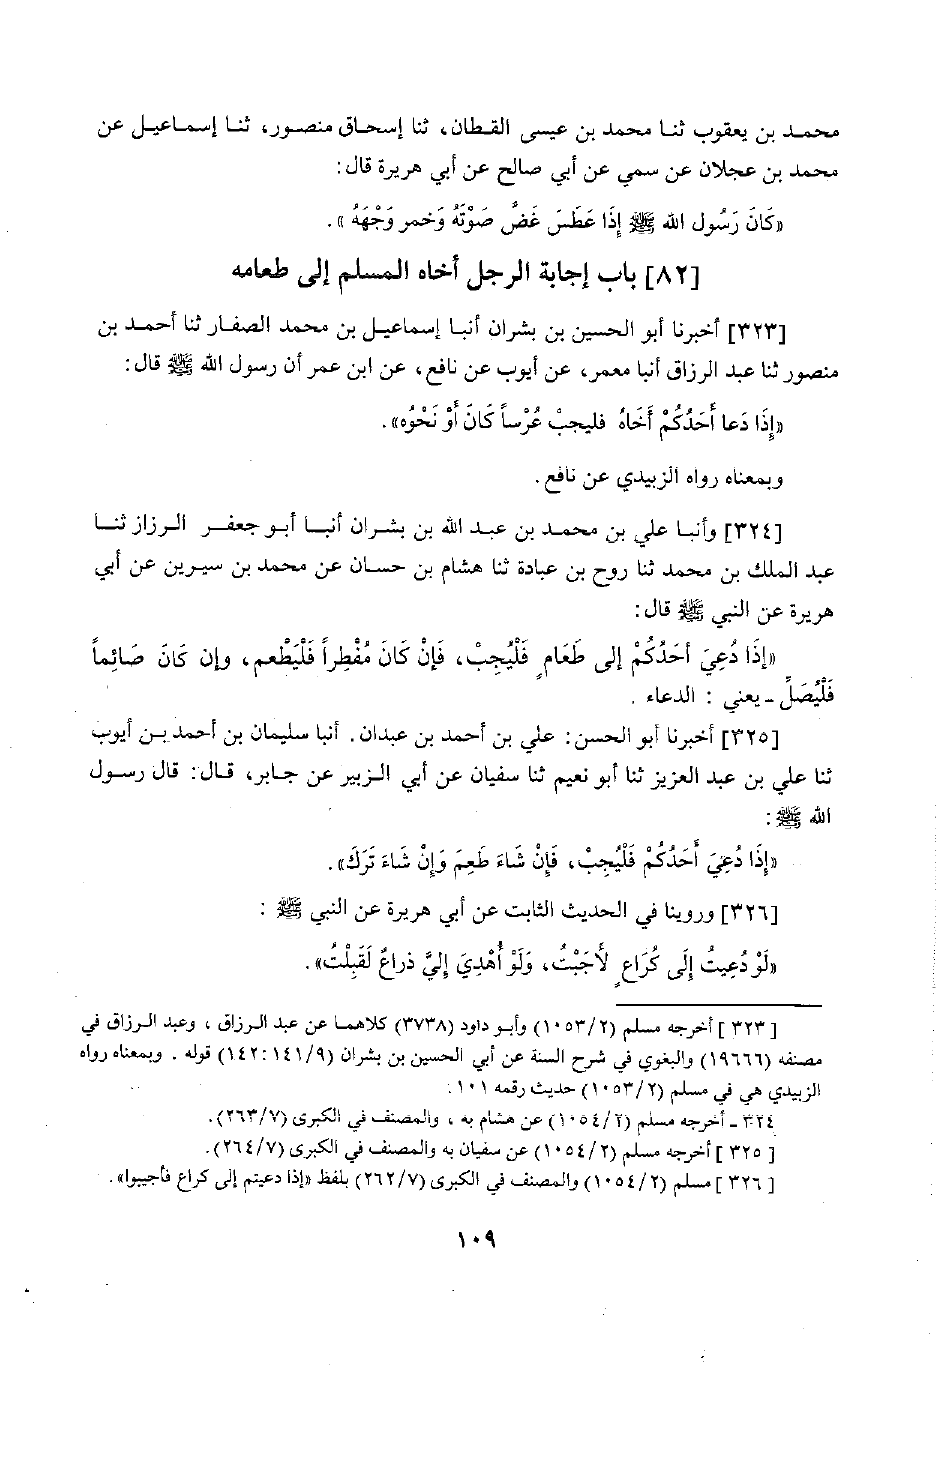 محمد بن يعقوب ثنا محمد بن عيسى القطان، ثنا إسحاق منصور، ثنا إسماعيل عن
محمد بن عجلان عن سمي عن أبي صالح عن أبي هريرة قال:
«كَانَ رَسُول الله ﷺ إِذَا عَطَسَ غَضَّ صَوْتَهُ وَخمر وَجْهَهُ».
[٨٢] باب إجابة الرجل أخاه المسلم إلى طعامه
[٣٢٣] أخبرنا أبو الحسين بن بشران أنبا إسماعيل بن محمد الصفار ثنا أحمد بن
منصور ثنا عبد الرزاق أنبا معمر، عن أيوب عن نافع، عن ابن عمر أن رسول الله ﷺ قال:
«إِذَا دَعا أَحَدُكُمْ أَخَاهُ فليجبْ عُرْساً كَانَ أَوْ نَحْوُه».
وبمعناه رواه الزبيدي عن نافع.
[٣٢٤] وأنبا علي بن محمد بن عبد الله بن بشران أنبا أبو جعفر الرزاز ثنا
عبد الملك بن محمد ثنا روح بن عبادة ثنا هشام بن حسان عن محمد بن سيرين عن أبي
هريرة عن النبي ﷺ قال:
«إذَا دُعِيَ أحَدُكُمْ إلى طَعَامٍ فَلْيُجِبْ، فَإنْ كَانَ مُفْطِراً فَلْيَطْعم، وإن كَانَ صَائِماً
فَلْيُصَلِّ - يعني : الدعاء .
[٣٢٥] أخبرنا أبو الحسن: علي بن أحمد بن عبدان. أنبا سليمان بن أحمد بن أيوب
ثنا علي بن عبد العزيز ثنا أبو نعيم ثنا سفيان عن أبي الزبير عن جابر، قال: قال رسول
الله ﷺ:
«إِذَا دُعِيَ أَحَدُكُمْ فَلْيُجِبْ، فَإِنْ شَاءَ طَعِمَ وَإِنْ شَاءَ تَرَكَ».
[٣٢٦] وروينا في الحديث الثابت عن أبي هريرة عن النبي ﷺ :
«لَوْ دُعِيتُ إِلَى كُرَاعٍ لأَجَبْتُ، وَلَوْ أُهْدِيَ إِليَّ ذراعٌ لَقَبِلْتُ».
[٣٢٣] أخرجه مسلم (١٠٥٣/٢) وأبو داود (٣٧٣٨) كلاهما عن عبد الرزاق ، وعبد الرزاق في
مصنفه (١٩٦٦٦) والبغوي في شرح السنة عن أبي الحسين بن بشران (١٤٢:١٤١/٩) قوله . وبمعناه رواه
الزبيدي هي في مسلم (١٠٥٣/٢) حديث رقمه ١٠١.
٣٢٤ - أخرجه مسلم (١٠٥٤/٢) عن هشام به ، والمصنف في الكبرى (٢٦٣/٧).
[٣٢٥] أخرجه مسلم (١٠٥٤/٢) عن سفيان به والمصنف في الكبرى (٢٦٤/٧).
[٣٢٦] مسلم (١٠٥٤/٢) والمصنف في الكبرى (٢٦٢/٧) بلفظ «إذا دعيتم إلى كراع فأجيبوا».
١٠٩